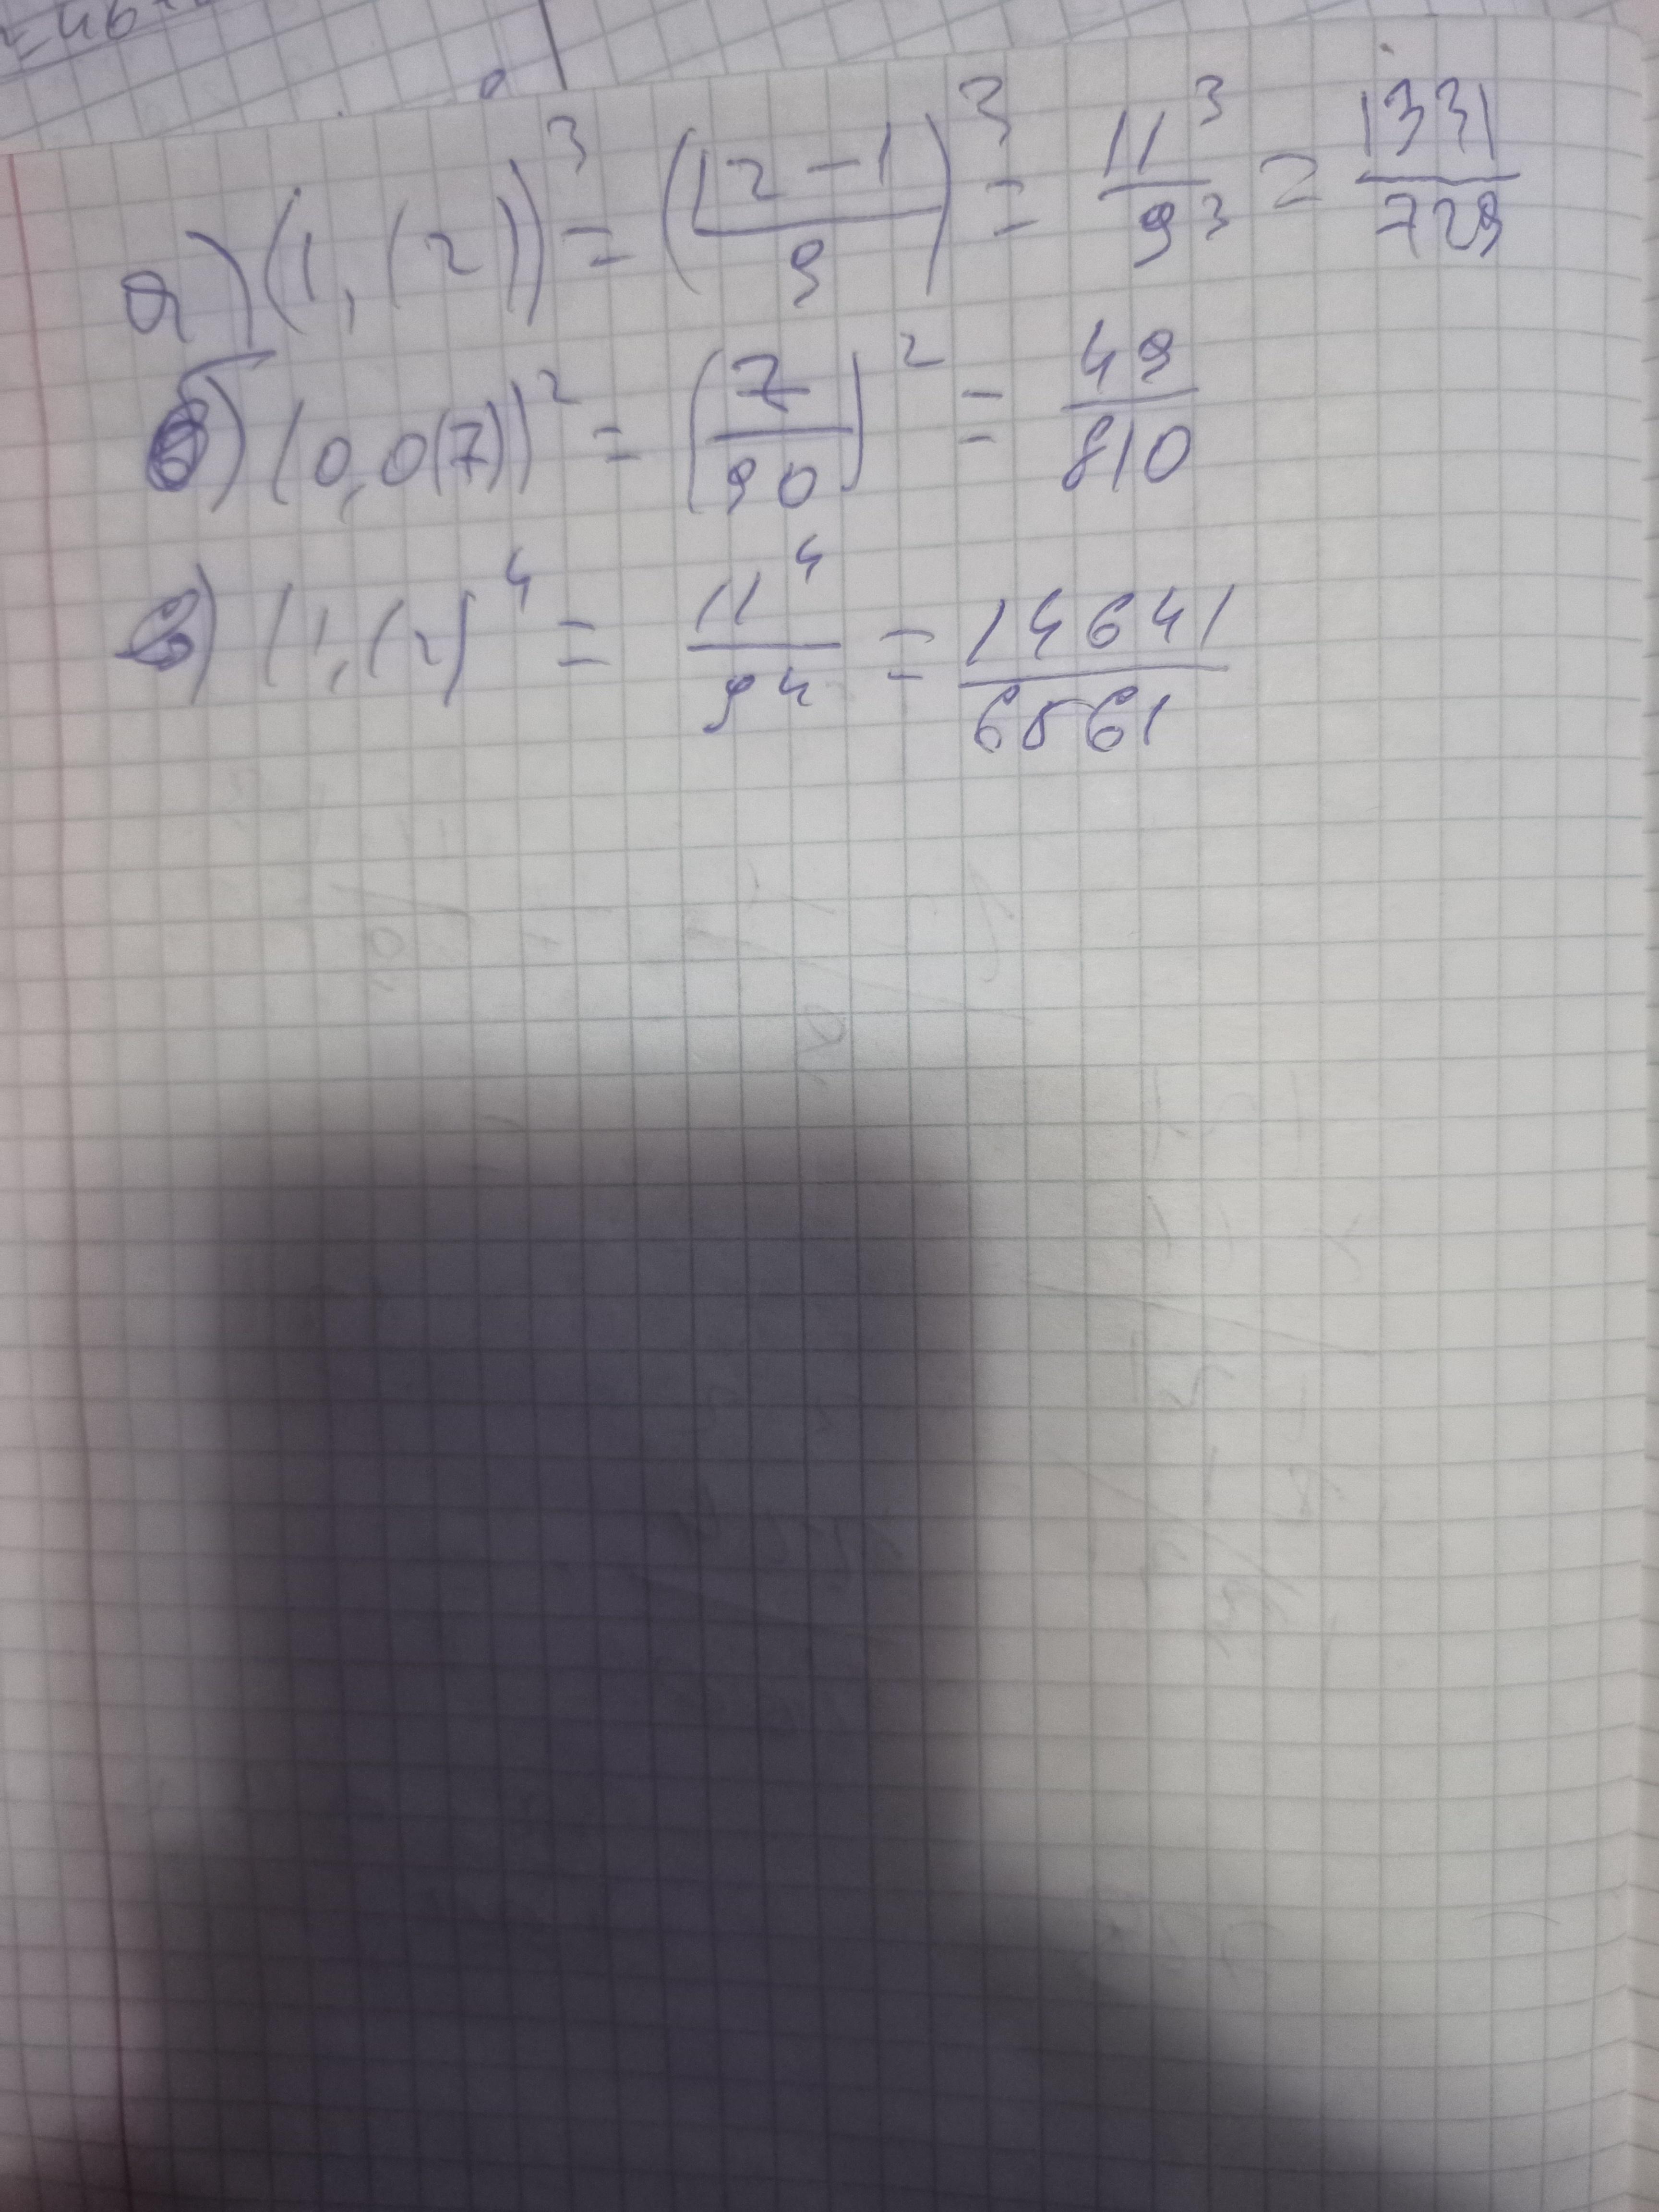 =46
а) (1,(2))³ = ((12-1)/9)³ = 11³/9³ = 1331/729
б) (0,0(7))² = (7/90)² = 49/810
в) (1,(2))⁴ = 11⁴/9⁴ = 14641/6561